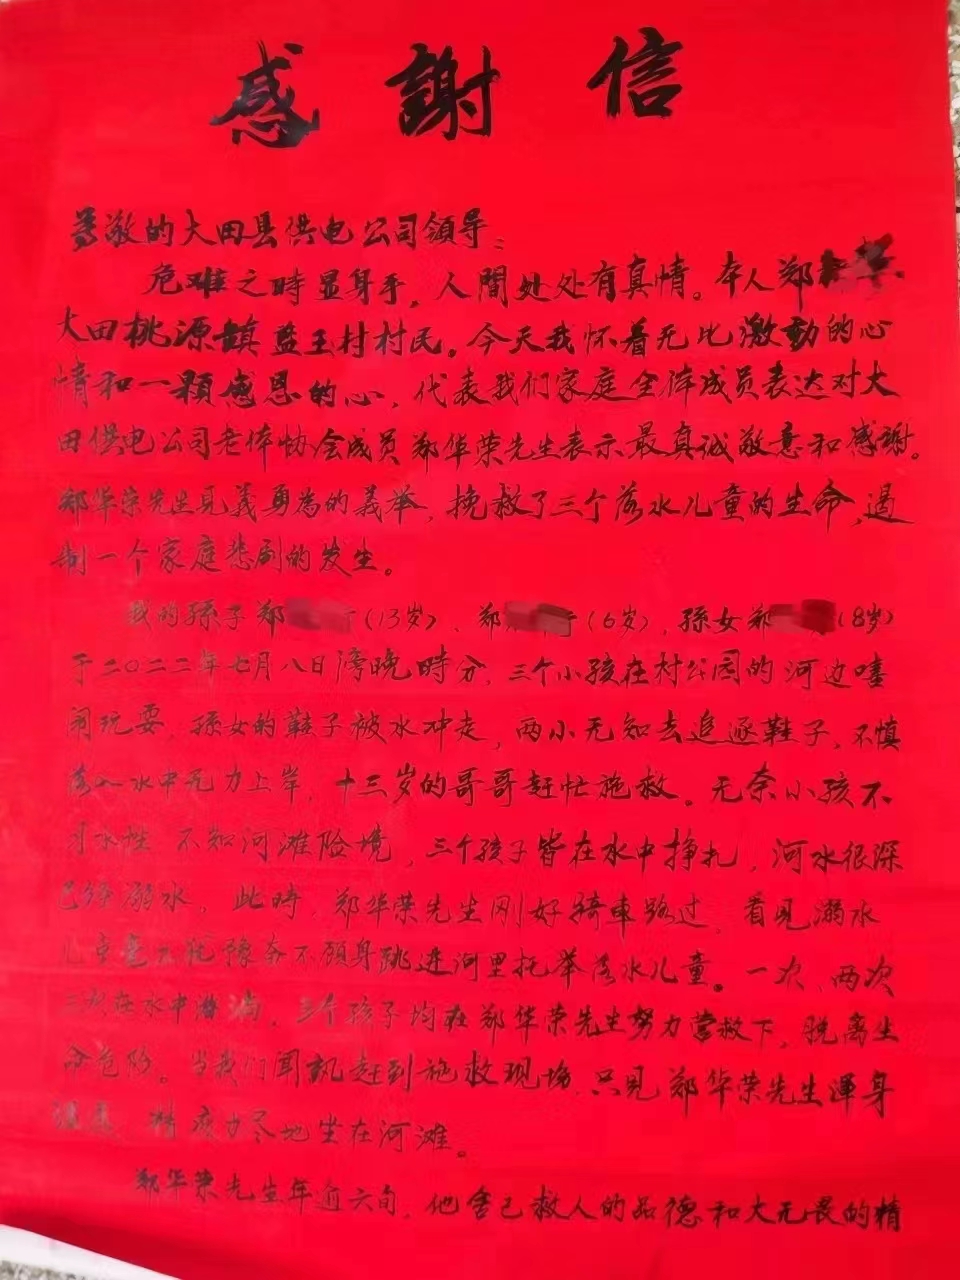 感謝信
尊敬的大田县供电公司領导：
危难之時显身手，人間处处有真情。本人郑
大田桃源镇蓝玉村村民。今天我怀着无比激動的心
情和一顆感恩的心，代表我们家庭全体成员表达对大
田供电公司老体协会成员郑华荣先生表示最真诚敬意和感謝。
郑华荣先生見義勇為的義举，挽救了三个落水儿童的生命，遏
制一个家庭悲剧的发生。
我的孫子郑（13岁）、郑（6岁），孫女郑（8岁）
于二〇二二年七月八日傍晚時分，三个小孩在村公园的河边嘻
闹玩耍，孫女的鞋子被水冲走，两小无知去追逐鞋子，不慎
落入水中无力上岸，十三岁的哥哥赶忙施救。无奈小孩不
习水性 不知河滩险境，三个孩子皆在水中挣扎，河水很深
已经溺水。此時，郑华荣先生刚好骑車路过，看见溺水
儿童毫不犹豫奋不顾身跳进河里托举落水儿童。一次、两次
三次在水中，三个孩子均在郑华荣先生努力营救下，脱离生
命危险。当我们闻讯赶到施救现场，只见郑华荣先生渾身
湿透，精疲力尽地坐在河滩。
郑华荣先生年逾六旬，他舍己救人的品德和大无畏的精